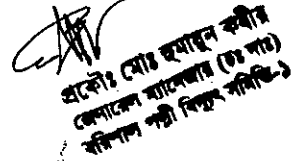 প্রকৌঃ মোঃ হুমায়ুন কবীর
জেনারেল ম্যানেজার (চঃ দাঃ)
বরিশাল পল্লী বিদ্যুৎ সমিতি-১